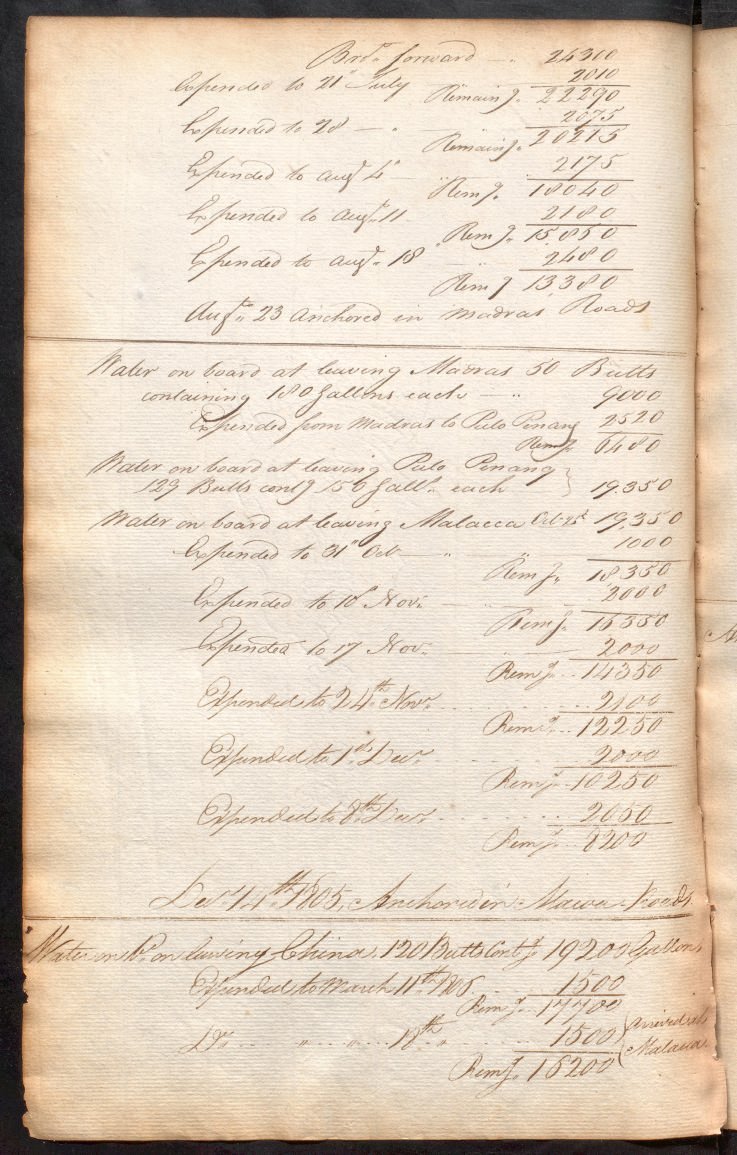 Brot. forward — .. 24310
Expended to 21st July 2010
Remaing. 22290
Expended to 28 — " 2075
Remaing. 20215
Expended to Augt 4th — 2175
Remg. 18040
Expended to Augt. 11 2180
Remg. 15850
Expended to Augt. 18 2480
Remg 13380
Augt. 23 Anchored in Madras Roads
Water on board at leaving Madras 50 Butts
containing 180 Gallons each — " 9000
Expended from Madras to Pulo Penang 2520
Remg. 6480
Water on board at leaving Pulo Penang }
129 Butts contg 150 Galls. each } 19.350
Water on board at leaving Malacca Oct. 19,350
Expended to 31st Oct — " 1000
Remg. 18350
Expended to 10th Nov. 2000
Remg. 16350
Expended to 17 Nov. 2000
Remg. .. 14350
Expended to 24th Novr. 2100
Remg. .. 12250
Expended to 1st. Decr. 2000
Remg. 10250
Expended to 8th. Decr. 2050
Remg. 8200
Decr. 14th 1805, Anchored in Roads.
Water on Bd. on leaving China. 120 Butts Contg. 19200 Gallons
Expended to March 11th 1806. 1500
Remg. .. 17700
Do. " " 18th " 1500 (Arrived at
Malacca.
Remg. 16200